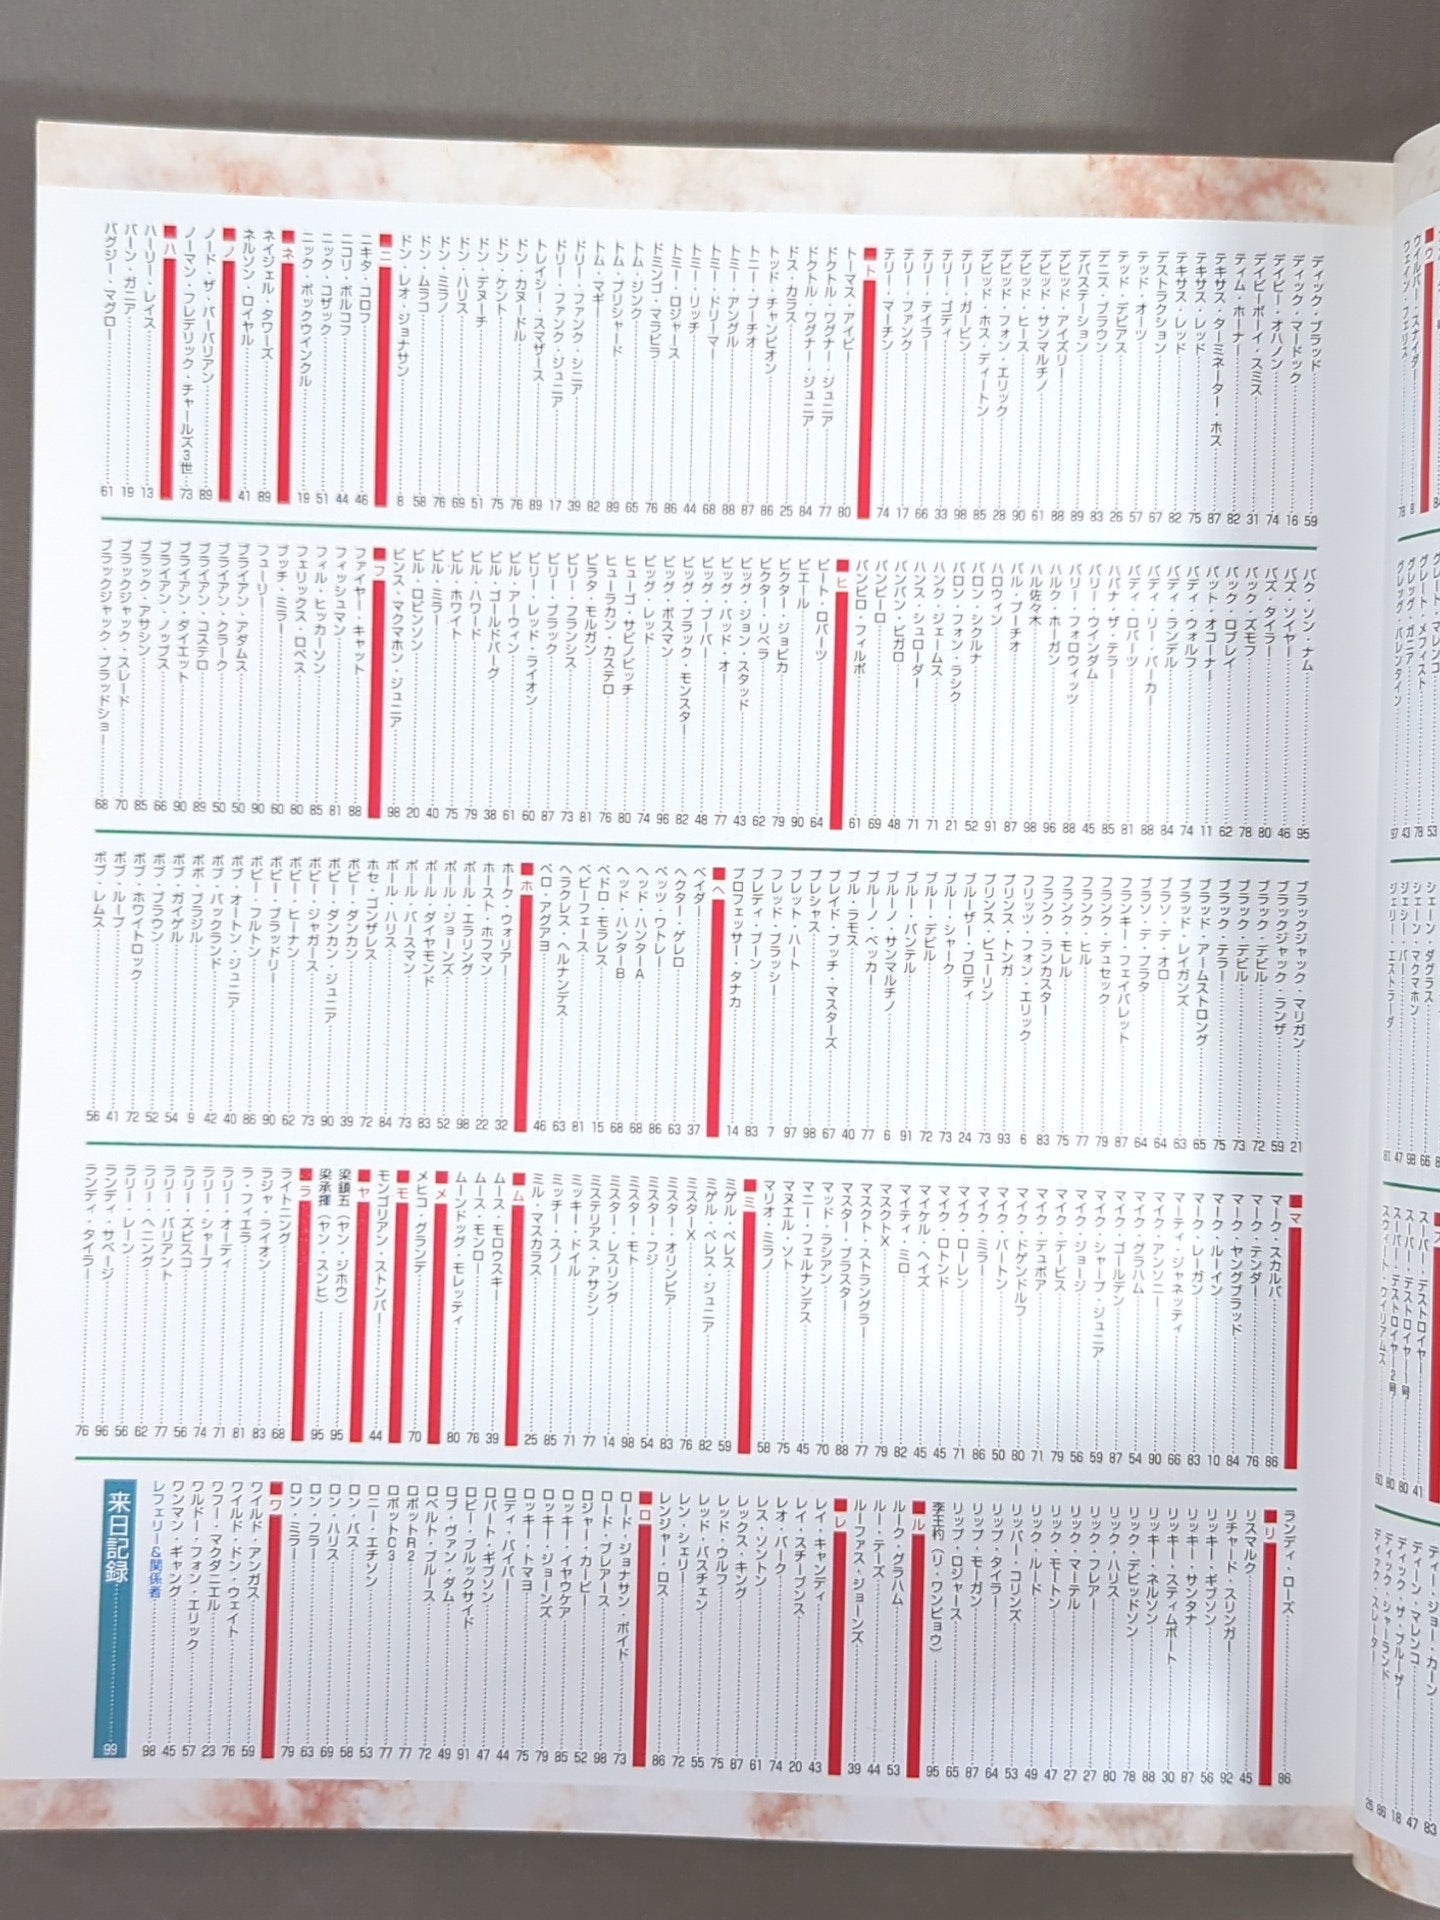 ディック・ブラッド 59
ディック・マードック 16
デイビー・オハノン 74
デイビーボーイ・スミス 31
ティム・ホーナー 82
テキサス・ターミネーター・ホス 87
テキサス・レッド 75
テキサス・レッド 82
デストラクション 67
テッド・オーツ 57
テッド・デビアス 26
デニス・ブラウン 83
デバステーション 89
デビッド・アイズリー 88
デビッド・サンマルチノ 61
デビッド・ヒース 90
デビッド・フォン・エリック 28
デビッド・ホス・ディートン 85
テリー・ガービン 98
テリー・ゴディ 33
テリー・テイラー 66
テリー・ファンク 17
テリー・マーチン 74
■ト
トーマス・アイビー 80
ドクトル・ワグナー・ジュニア 77
ドクトル・ワグナー・ジュニア 84
ドス・カラス 25
トッド・チャンピオン 86
トニー・プーチオ 87
トミー・アングル 88
トミー・ドリーマー 68
トミー・リッチ 44
トミー・ロジャース 86
ドミンゴ・マラビラ 76
トム・ジンク 65
トム・プリシャード 89
トム・マギー 82
ドリー・ファンク・シニア 39
ドリー・ファンク・ジュニア 17
トレイシー・スマザース 89
ドン・カヌードル 76
ドン・ケント 75
ドン・デヌーチ 51
ドン・ハリス 69
ドン・ミラノ 76
ドン・ムラコ 58
ドン・レオ・ジョナサン 8
■ニ
ニキタ・コロフ 46
ニコリ・ボルコフ 44
ニック・コザック 51
ニック・ボックウインクル 19
■ネ
ネイジェル・タワーズ 89
ネルソン・ロイヤル 41
■ノ
ノード・ザ・バーバリアン 89
ノーマン・フレデリック・チャールズ3世 73
■ハ
ハーリー・レイス 13
バーン・ガニア 19
バグジー・マグロー 61
パク・ソン・ナム 95
バズ・ソイヤー 46
バズ・タイラー 80
バック・ズモフ 78
バック・ロブレイ 62
パット・オコーナー 11
バディ・ウォルフ 74
バディ・ランデル 84
バディ・リー・パーカー 88
バディ・ロバーツ 81
ハバナ・ザ・テラー 85
バリー・ウインダム 45
バリー・フォロウィッツ 88
ハルク・ホーガン 96
ハル佐々木 98
バル・プーチオ 87
ハロウィン 91
バロン・シクルナ 52
バロン・フォン・ラシク 21
ハンク・ジェームス 71
ハンス・シュローダー 71
バンバン・ビガロ 48
バンピーロ 69
バンピロ・フィルポ 61
■ヒ
ビート・ロバーツ 64
ピエール 90
ビクター・ジョビカ 79
ビクター・リベラ 62
ビッグ・ジョン・スタッド 43
ビッグ・バッド・オー 77
ビッグ・ブーバー 48
ビッグ・ブラック・モンスター 82
ビッグ・ボスマン 96
ビッグ・レッド 74
ヒューゴ・サビノビッチ 80
ヒューラカン・カステロ 76
ピラタ・モルガン 81
ビリー・フランシス 73
ビリー・ブラック 87
ビリー・レッド・ライオン 60
ビル・アーウィン 61
ビル・ゴールドバーグ 38
ビル・ハワード 79
ビル・ホワイト 75
ビル・ミラー 40
ビル・ロビンソン 20
ビンス・マクマホン・ジュニア 98
■フ
ファイヤー・キャット 88
フィッシュマン 81
フィル・ヒッカーソン 85
フェリックス・ロペス 80
ブッチ・ミラー 60
フューリー 90
ブライアン・アダムス 50
ブライアン・クラーク 50
ブライアン・コステロ 89
ブライアン・ダイエット 90
ブライアン・ノッブス 66
ブラック・アサシン 85
ブラックジャック・スレード 70
ブラックジャック・ブラッドショー 68
ブラックジャック・マリガン 21
ブラックジャック・ランザ 59
ブラック・デビル 72
ブラック・デビル 73
ブラック・テラー 75
ブラッド・アームストロング 65
ブラッド・レイガンズ 63
ブラソ・デ・オロ 64
ブラソ・デ・プラタ 64
フランキー・フェイバレット 87
フランク・デュセック 79
フランク・ヒル 77
フランク・モレル 75
フランク・ランカスター 83
フリッツ・フォン・エリック 6
プリンス・トンガ 93
プリンス・ピューリン 73
ブルーザー・ブロディ 24
ブルー・シャーク 73
ブルー・デビル 72
ブルー・パンテル 91
ブルーノ・サンマルチノ 6
ブルーノ・ベッカー 77
ブル・ラモス 40
ブレイド・ブッチ・マスターズ 67
プレシャス 98
ブレット・ハート 97
フレッド・ブラッシー 7
ブレディ・ブーン 83
プロフェッサー・タナカ 14
■ヘ
ベイダー 37
ヘクター・ゲレロ 63
ペッツ・ワトレー 86
ヘッド・ハンターA 68
ヘッド・ハンターB 68
ペドロ・モラレス 15
ベビーフェース 81
ヘラクレス・ヘルナンデス 63
ペロ・アグアヨ 46
■ホ
ホーク・ウォリアー 32
ホースト・ホフマン 22
ポール・エラリング 98
ポール・ジョーンズ 52
ポール・ダイヤモンド 83
ポール・バースマン 73
ポール・ハリス 84
ホセ・ゴンザレス 72
ボビー・ダンカン 39
ボビー・ダンカン・ジュニア 90
ボビー・ジャガース 73
ボビー・ヒーナン 62
ボビー・ブラッドリー 90
ボビー・フルトン 86
ボブ・オートン・ジュニア 40
ボブ・バックランド 42
ボボ・ブラジル 9
ボブ・ガイゲル 54
ボブ・ブラウン 52
ボブ・ホワイトロック 72
ボブ・ループ 41
ボブ・レムス 56
■マ
マーク・スカルパ 86
マーク・テンダー 76
マーク・ヤングブラッド 84
マーク・ルーイン 10
マーク・レーガン 83
マーティ・ジャネッティ 66
マイク・アンソニー 90
マイク・グラハム 54
マイク・ゴールデン 87
マイク・シャープ・ジュニア 89
マイク・ジョージ 59
マイク・デービス 56
マイク・デュポア 79
マイク・ドゲンドルフ 71
マイク・バートン 80
マイク・ミラー 50
マイク・ローレン 86
マイク・ロトンド 71
マイケル・ヘイズ 45
マイティ・ミロ 45
マスクトX 82
マスクト・ストラングラー 79
マスター・ブラスター 77
マッド・ラシアン 88
マニー・フェルナンデス 70
マヌエル・ソト 45
マリオ・ミラノ 75
58
■ミ
ミゲル・ペレス 59
ミゲル・ペレス・ジュニア 82
ミスターX 76
ミスター・オリンピア 83
ミスター・フジ 54
ミスター・モト 98
ミスター・レスリング 14
ミステリアス・アサシン 77
ミッキー・ドイル 71
ミッチー・スノー 85
ミル・マスカラス 25
■ム
ムース・モロウスキー 39
ムース・モンロー 76
ムーンドッグ・モレッティ 80
■メ
メヒコ・グランデ 70
■モ
モンゴリアン・ストンパー 44
■ヤ
梁鎮五（ヤン・ジホウ） 95
梁承揮（ヤン・スンヒ） 95
■ラ
ライトニング 68
ラジャ・ライオン 83
ラ・フィエラ 81
ラリー・オーディ 71
ラリー・シャープ 74
ラリー・ズビスコ 56
ラリー・バリアント 77
ラリー・ヘニング 62
ラリー・レーン 56
ランディ・サベージ 96
ランディ・タイラー 76
ランディ・ローズ 86
■リ
リスマルク 45
リチャード・スリンガー 92
リッキー・ギブソン 56
リッキー・サンタナ 87
リッキー・スティムボート 30
リッキー・ネルソン 88
リック・デビッドソン 78
リック・ハリス 80
リック・フレアー 27
リック・マーテル 27
リック・モートン 47
リック・ルード 49
リッパー・コリンズ 53
リップ・タイラー 64
リップ・モーガン 87
リップ・ロジャース 65
李王杓（リ・ワンピョウ） 95
■ル
ルーク・グラハム 53
ルー・テーズ 44
ルーファス・ジョーンズ 39
■レ
レイ・キャンディ 43
レイ・スチーブンス 20
レオ・バーク 74
レス・ソントン 61
レックス・キング 87
レッド・ウルフ 75
レッド・バスチェン 55
レン・シェリー 72
レンジャー・ロス 86
■ロ
ロード・ジョナサン・ボイド 73
ロード・ブレアース 98
ロジャー・カービー 52
ロッキー・イヤウケア 85
ロッキー・ジョーンズ 79
ロッキー・トマヨ 75
ロディ・パイパー 44
ロバート・ギブソン 47
ロビー・ブルックサイド 91
ロブ・ヴァン・ダム 49
ロベルト・ブルース 72
ロボットR2 77
ロボットC3 77
ロニー・エチソン 53
ロン・バス 58
ロン・ハリス 69
ロン・フラー 63
ロン・ミラー 79
■ワ
ワイルド・アンガス 59
ワイルド・ドン・ウェイト 76
ワフー・マクダニエル 23
ワルドー・フォン・エリック 57
ワンマン・ギャング 45
レフェリー&関係者 98
来日記録 99
■ウ
ウイルバー・スナイダー 8
ウェイン・フェリス 78
グレート・メフィスト
グレッグ・ガニア 43
グレッグ・バレンタイン 97
シェーン・ダグラス
シェーン・マクマホン 98
ジェシー・バー 47
ジェリー・エストラーダ 81
スーパー・デストロイヤー 41
スーパー・デストロイヤー1号 80
スーパー・デストロイヤー2号 80
スウィート・ウイリアムス 60
ディー・ジョー・カーン 83
ディーン・マレンコ 47
ディック・ザ・ブルーザー 18
ディック・シャーランド 86
ディック・スレーター 26